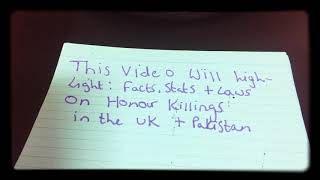 This Video Will high-
Light: Facts, Stats + Laws
On Honour Killings:
in the UK + Pakistan